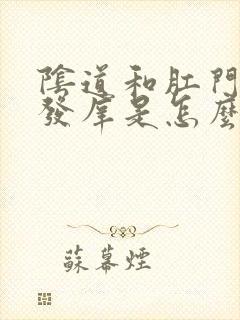 陰道和肛門
發庠是怎麼
蘇幕煙